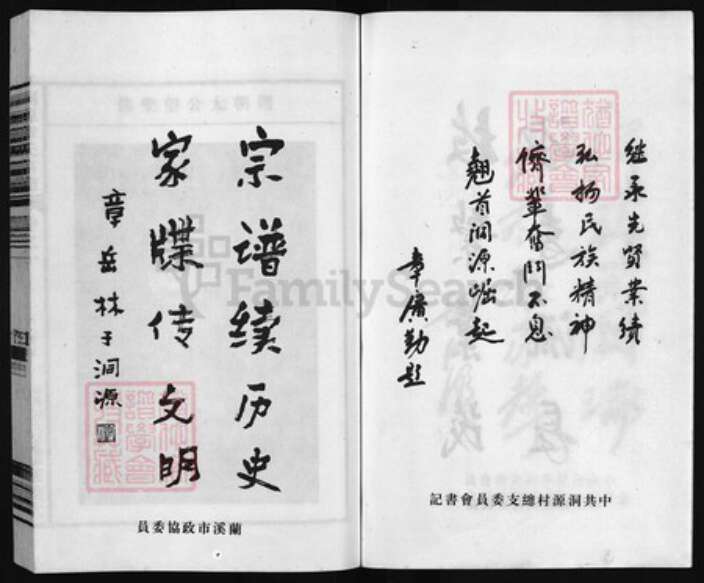 继承先贤業绩
弘扬民族精神
儕輩奮鬥不息
翘首洞源崛起
章广勤題
中共洞源村總支委員會書記
宗谱續历史
家牒传文明
章岳林于洞源
蘭溪市政協委員
FamilySearch